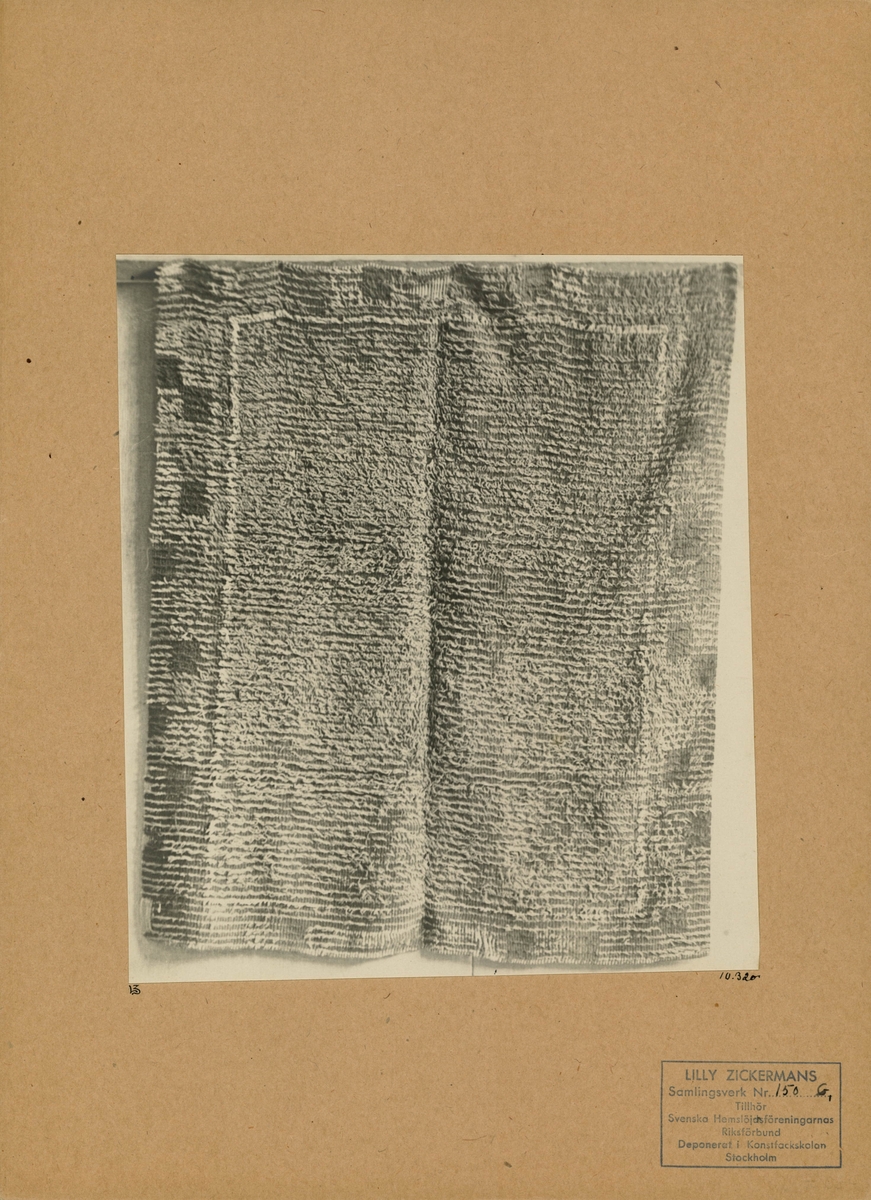 10.320
LILLY ZICKERMANS
Samlingsverk Nr. 150 G,
Tillhör
Svenska Hemslöjdsföreningarnas
Riksförbund
Deponerat i Konstfackskolan
Stockholm